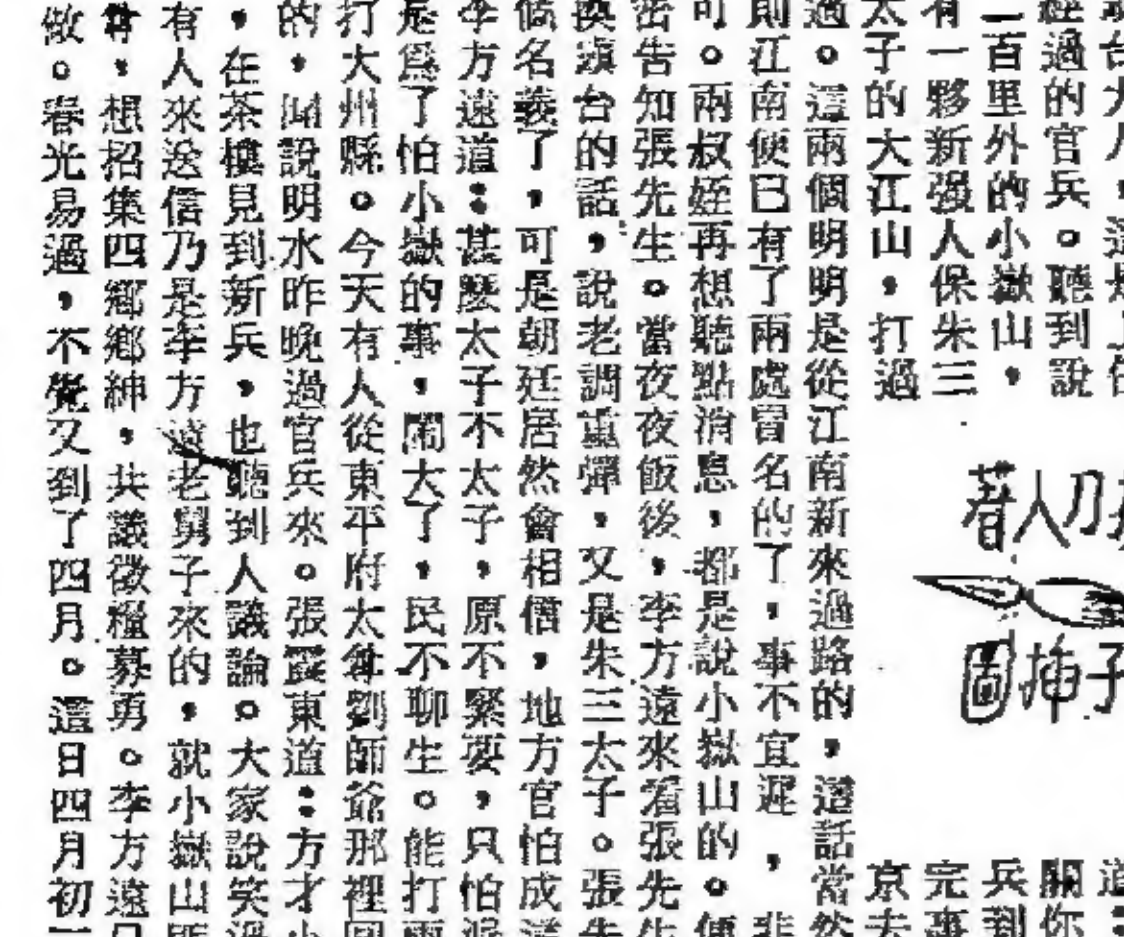 經過的官兵。聽到說
二百里外的小嶽山，
有一夥新强人保朱三
太子的大江山，打過
刀人著
子插圖
關你
兵到
完事
京去
過。這兩個明明是從江南新來過路的，這話當然
則江南便已有了兩處冒名的了，事不宜遲，非
可。兩叔姪再想聽點消息，都是說小嶽山的。便
密告知張先生。當夜夜飯後，李方遠來看張先生
換鎮台的話，說老調重彈，又是朱三太子。張先
個名義了，可是朝廷居然會相信，地方官怕成這
李方遠道：甚麼太子不太子，原不緊要，只怕
是爲了怕小嶽的事，鬧大了，民不聊生。能打兩
打大州縣。今天有人從東平府太尊劉師爺那裡回
的，聞說明水昨晚過官兵來。張霞東道：方才小
，在茶樓見到新兵，也聽到人議論。大家說笑過
有人來送信乃是李方遠老舅子來的，就小嶽山
尊，想招集四鄉鄉紳，共議徵糧募勇。李方遠只
做。春光易過，不覺又到了四月。這日四月初一